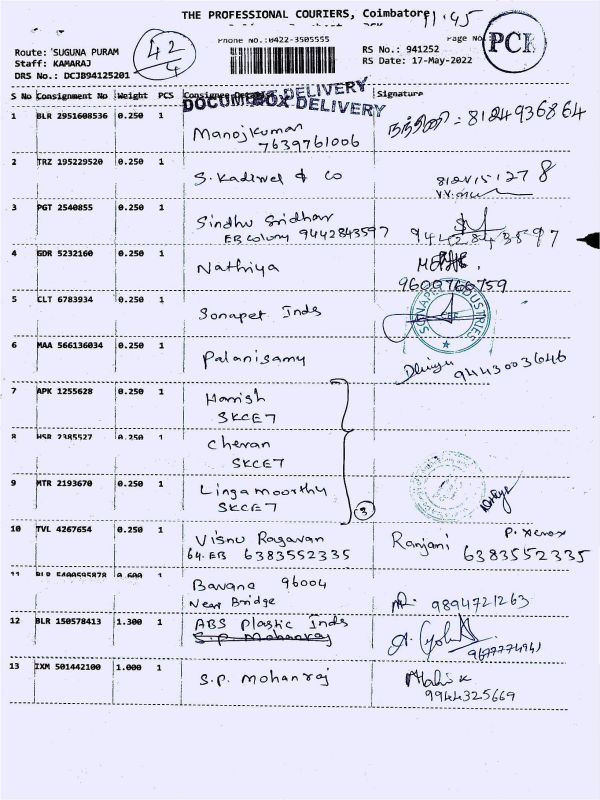 THE PROFESSIONAL COURIERS, Coimbatore 11.45
Phone No.:0422-3505555 Page No
Route: SUGUNA PURAM 42/4 RS No.: 941252 PCK
Staff: KAMARAJ RS Date: 17-May-2022
DRS No.: DCJB94125201
S No Consignment No Weight PCS Signature
DOCUMENT DELIVERY
BOX DELIVERY
1 BLR 2951608536 0.250 1 Manojkumar நந்தினி : 8124936864
7639761006
2 TRZ 195229520 0.250 1 S. Kadivel & Co
3 PGT 2540855 0.250 1 Sindhu Sridhar
EB colony 9442843597 9442843597
4 GDR 5232160 0.250 1 Nathiya
9600766759
5 CLT 6783934 0.250 1 Sonapet Inds SONAPET INDUSTRIES
6 MAA 566136034 0.250 1 Palanisamy
9443003646
7 APK 1255628 0.250 1 Harrish
SKCET
8 HSR 2385527 0.250 1 Cheran
SKCET
9 MTR 2193670 0.250 1 Lingamoorthy
SKCET 3
10 TVL 4267654 0.250 1 Visnu Ragavan Ranjani P. Xerox
64. EB 6383552335 6383552335
11 BLR 5400595878 0.600 1 Bavana 96004
Near Bridge 9894721263
12 BLR 150578413 1.300 1 ABS Plastic Inds
S.P. Mohanraj
13 IXM 501442100 1.000 1 S.P. Mohanraj
9944325669